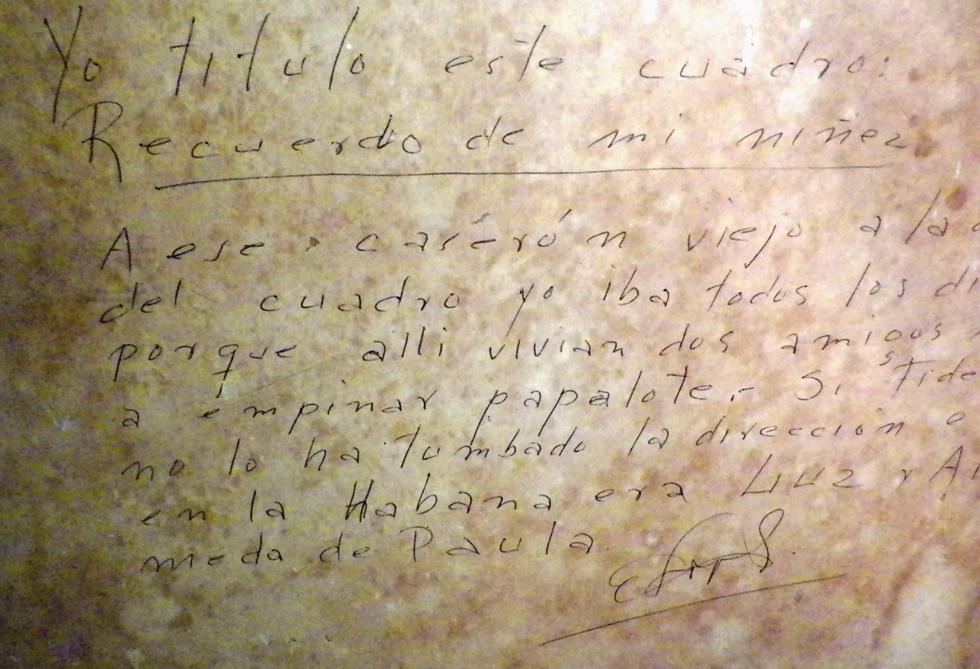 Yo titulo este cuadro:
Recuerdo de mi niñez
A ese caserón viejo a la
del cuadro yo iba todos los
porque alli vivian dos amigos
a empinar papalote.- Si Fide
no lo ha tumbado la dirección
en la Habana era Luz y
meda de Paula